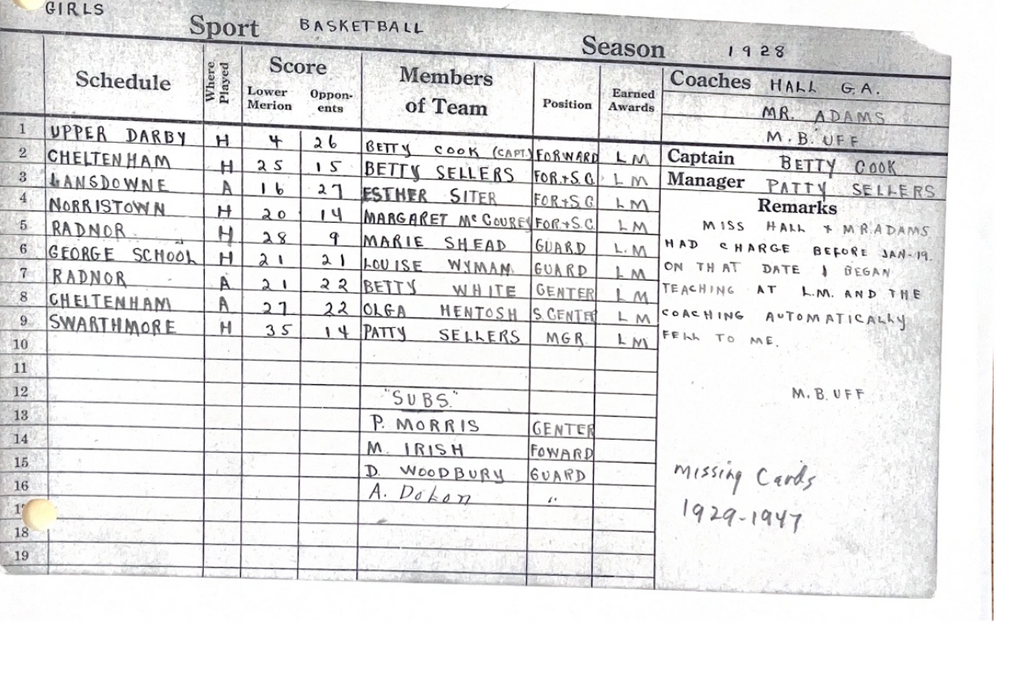 GIRLS
Sport BASKETBALL
Season 1928
Schedule Where Played Score Lower Merion Opponents Members of Team Position Earned Awards
Coaches HALL G.A.
MR. ADAMS
M. B. UFF
Captain BETTY COOK
Manager PATTY SELLERS
1 UPPER DARBY H 4 26 BETTY COOK (CAPT.) FORWARD L M
2 CHELTENHAM H 25 15 BETTY SELLERS FOR+S.C. L M
3 LANSDOWNE A 16 27 ESTHER SITER FOR+S.C L M
4 NORRISTOWN H 20 14 MARGARET FOR+S.C. L M
5 RADNOR H 28 9 MARIE SHEAD GUARD L.M
6 GEORGE SCHOOL H 21 21 LOUISE WYMAN GUARD L M
7 RADNOR A 21 22 BETTY WHITE CENTER L M
8 CHELTENHAM A 27 22 OLGA HENTOSH S.CENTER L M
9 SWARTHMORE H 35 14 PATTY SELLERS MGR. L M
10
11
12 "SUBS."
13 P. MORRIS CENTER
14 M. IRISH FOWARD
15 D. WOODBURY GUARD
16 A. "
18
19
Remarks
MISS HALL + MR ADAMS
HAD CHARGE BEFORE JAN-19.
ON THAT DATE I BEGAN
TEACHING AT L.M. AND THE
COACHING AUTOMATICALLY
FELL TO ME.
M. B. UFF
Missing Cards
1929-1947